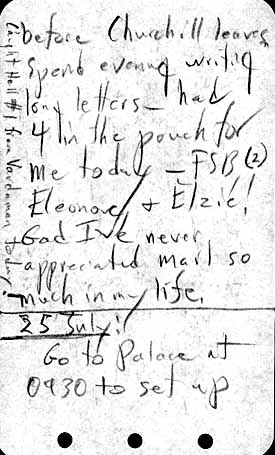 before Churchill leaves
spend evening writing
long letters – had
4 in the pouch for
me today – FSB (2)
Eleonore & Elzie!
God I've never
appreciated mail so
much in my life.
25 July:
Go to Palace at
0930 to set up
Caught Hell # 1 from Vardaman today!